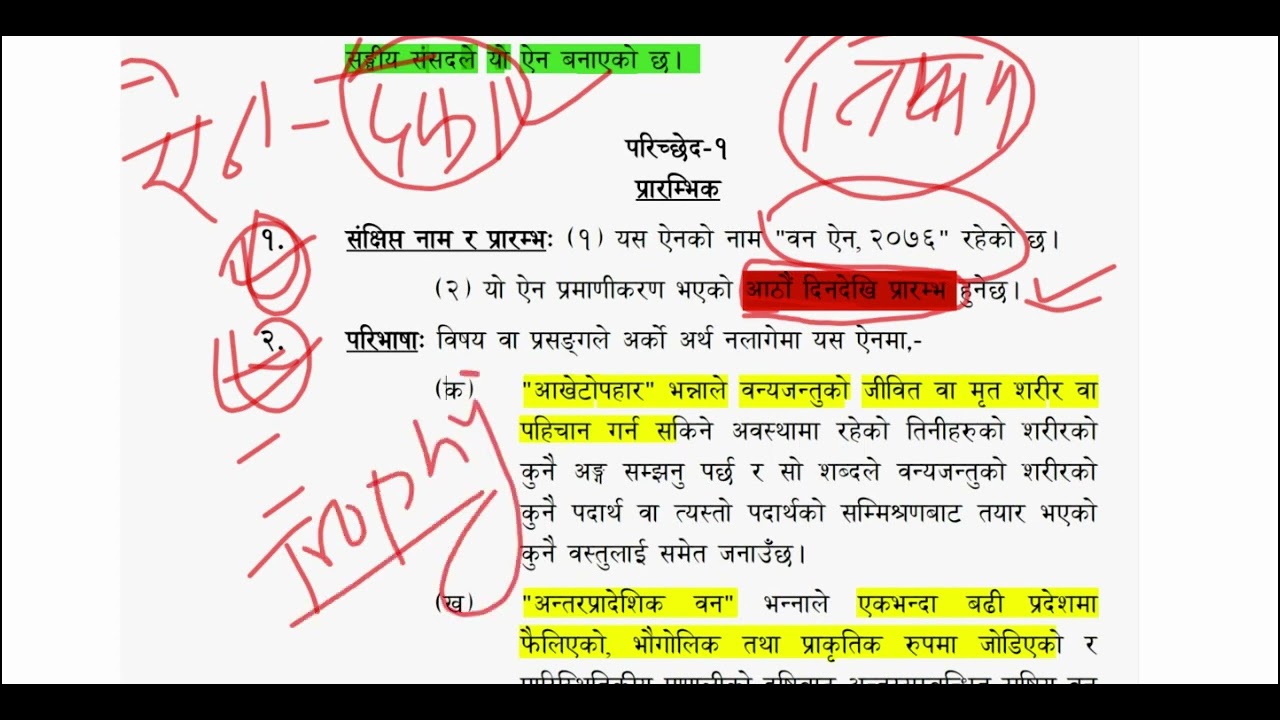 सङ्घीय संसदले यो ऐन बनाएको छ।
ऐन - दफा
नियम
परिच्छेद-१
प्रारम्भिक
१. संक्षिप्त नाम र प्रारम्भः (१) यस ऐनको नाम "वन ऐन, २०७६" रहेको छ।
(२) यो ऐन प्रमाणीकरण भएको आठौं दिनदेखि प्रारम्भ हुनेछ।
२. परिभाषाः विषय वा प्रसङ्गले अर्को अर्थ नलागेमा यस ऐनमा,-
(क) "आखेटोपहार" भन्नाले वन्यजन्तुको जीवित वा मृत शरीर वा
पहिचान गर्न सकिने अवस्थामा रहेको तिनीहरुको शरीरको
कुनै अङ्ग सम्झनु पर्छ र सो शब्दले वन्यजन्तुको शरीरको
कुनै पदार्थ वा त्यस्तो पदार्थको सम्मिश्रणबाट तयार भएको
कुनै वस्तुलाई समेत जनाउँछ।
Trophy
(ख) "अन्तरप्रादेशिक वन" भन्नाले एकभन्दा बढी प्रदेशमा
फैलिएको, भौगोलिक तथा प्राकृतिक रुपमा जोडिएको र